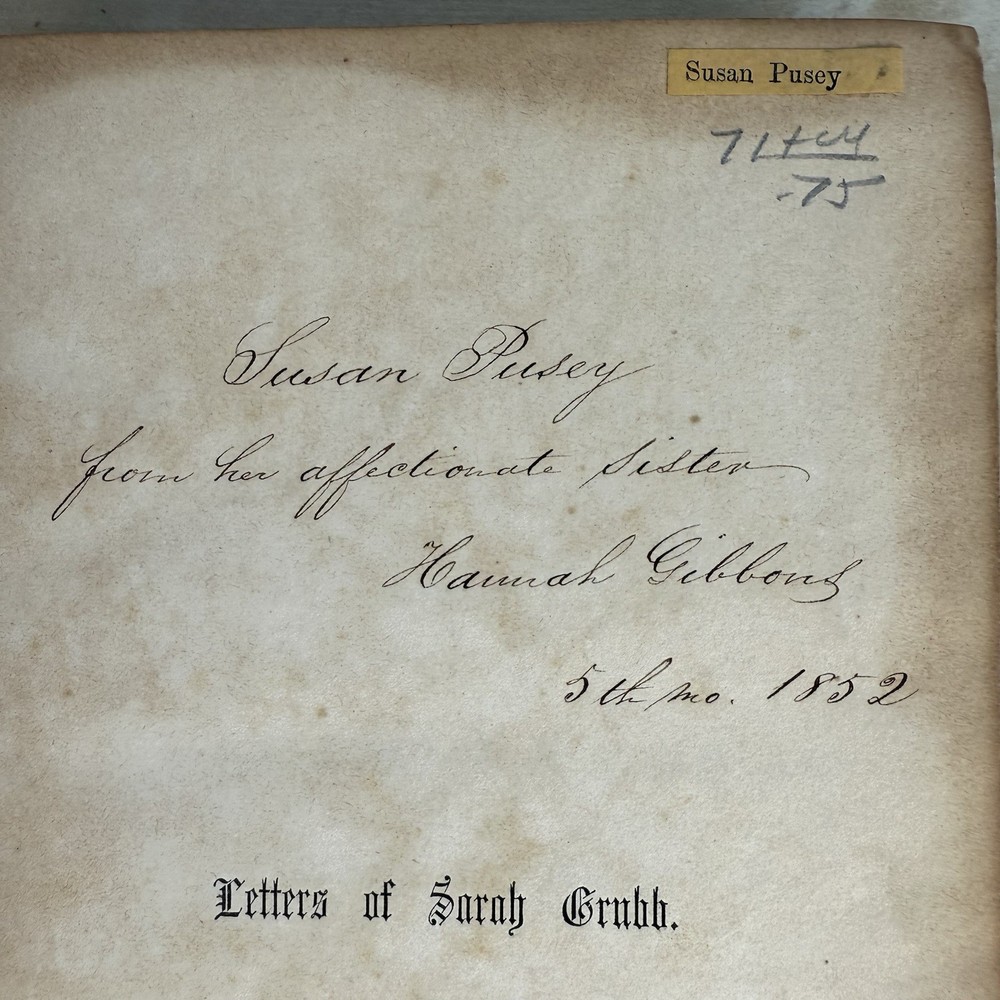 Susan Pusey
.75
Susan Pusey
from her affectionate sister
Hannah Gibbons
5th mo. 1852
Letters of Sarah Grubb.